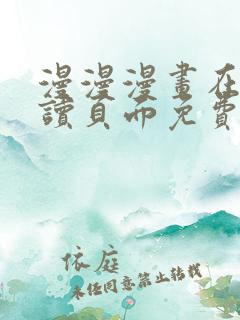 漫漫漫畫在
讀頁面免費
依庭
未经同意禁止转载